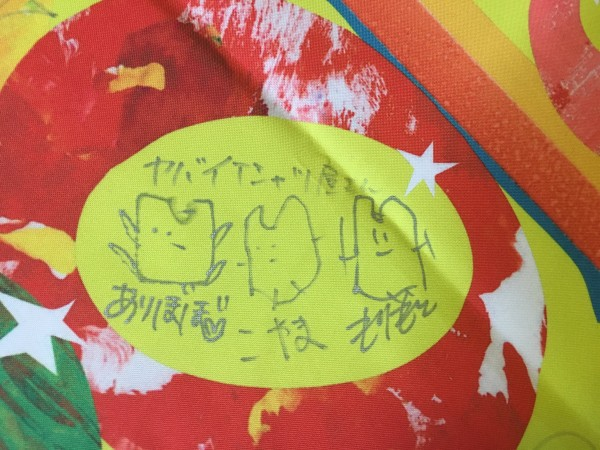 ヤバイTシャツ屋さん
ありぼぼ こやま もりもと